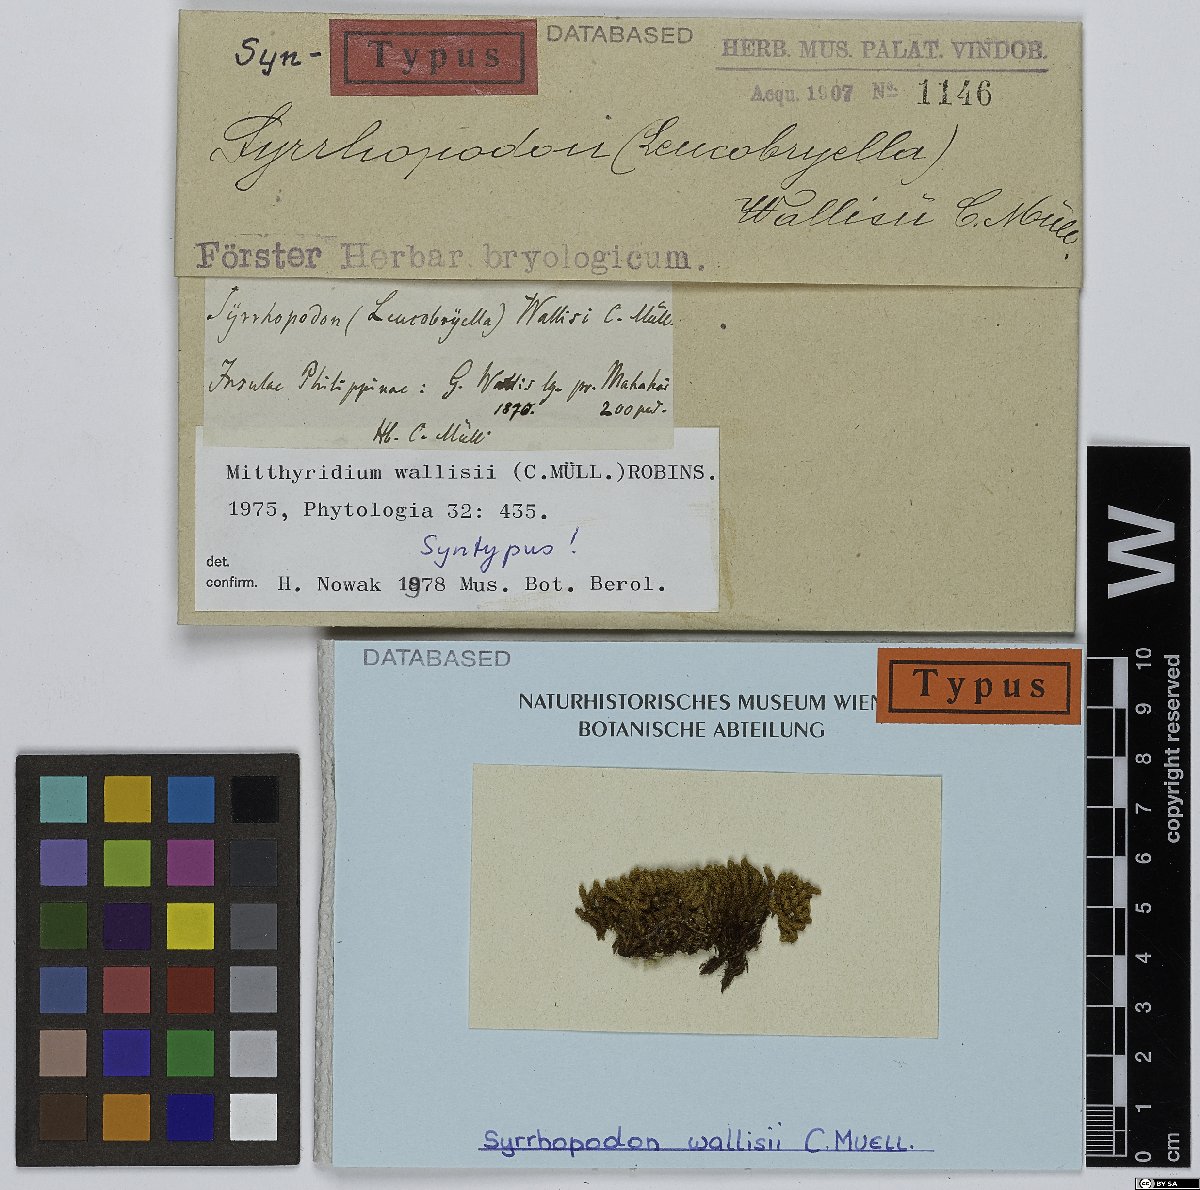 Syn- Typus DATABASED HERB. MUS. PALAT. VINDOB.
Acqu. 1907 No. 1146
Syrrhopodon (Leucobryella)
Wallisii C. Müll.
Förster Herbar bryologicum.
Syrrhopodon (Leucobryella) Wallisi C. Müll.
Insulae Philippinae: G. Wallis lg. pr.
1870. 200 ped.
Hb. C. Müll.
Mitthyridium wallisii (C.MÜLL.)ROBINS.
1975, Phytologia 32: 435.
Syntypus!
det.
confirm. H. Nowak 1978 Mus. Bot. Berol.
DATABASED
Typus
NATURHISTORISCHES MUSEUM WIEN
BOTANISCHE ABTEILUNG
Syrrhopodon wallisii C.MUELL.
W
copyright reserved
10
9
8
7
6
5
4
3
2
1
0
cm
CC BY SA